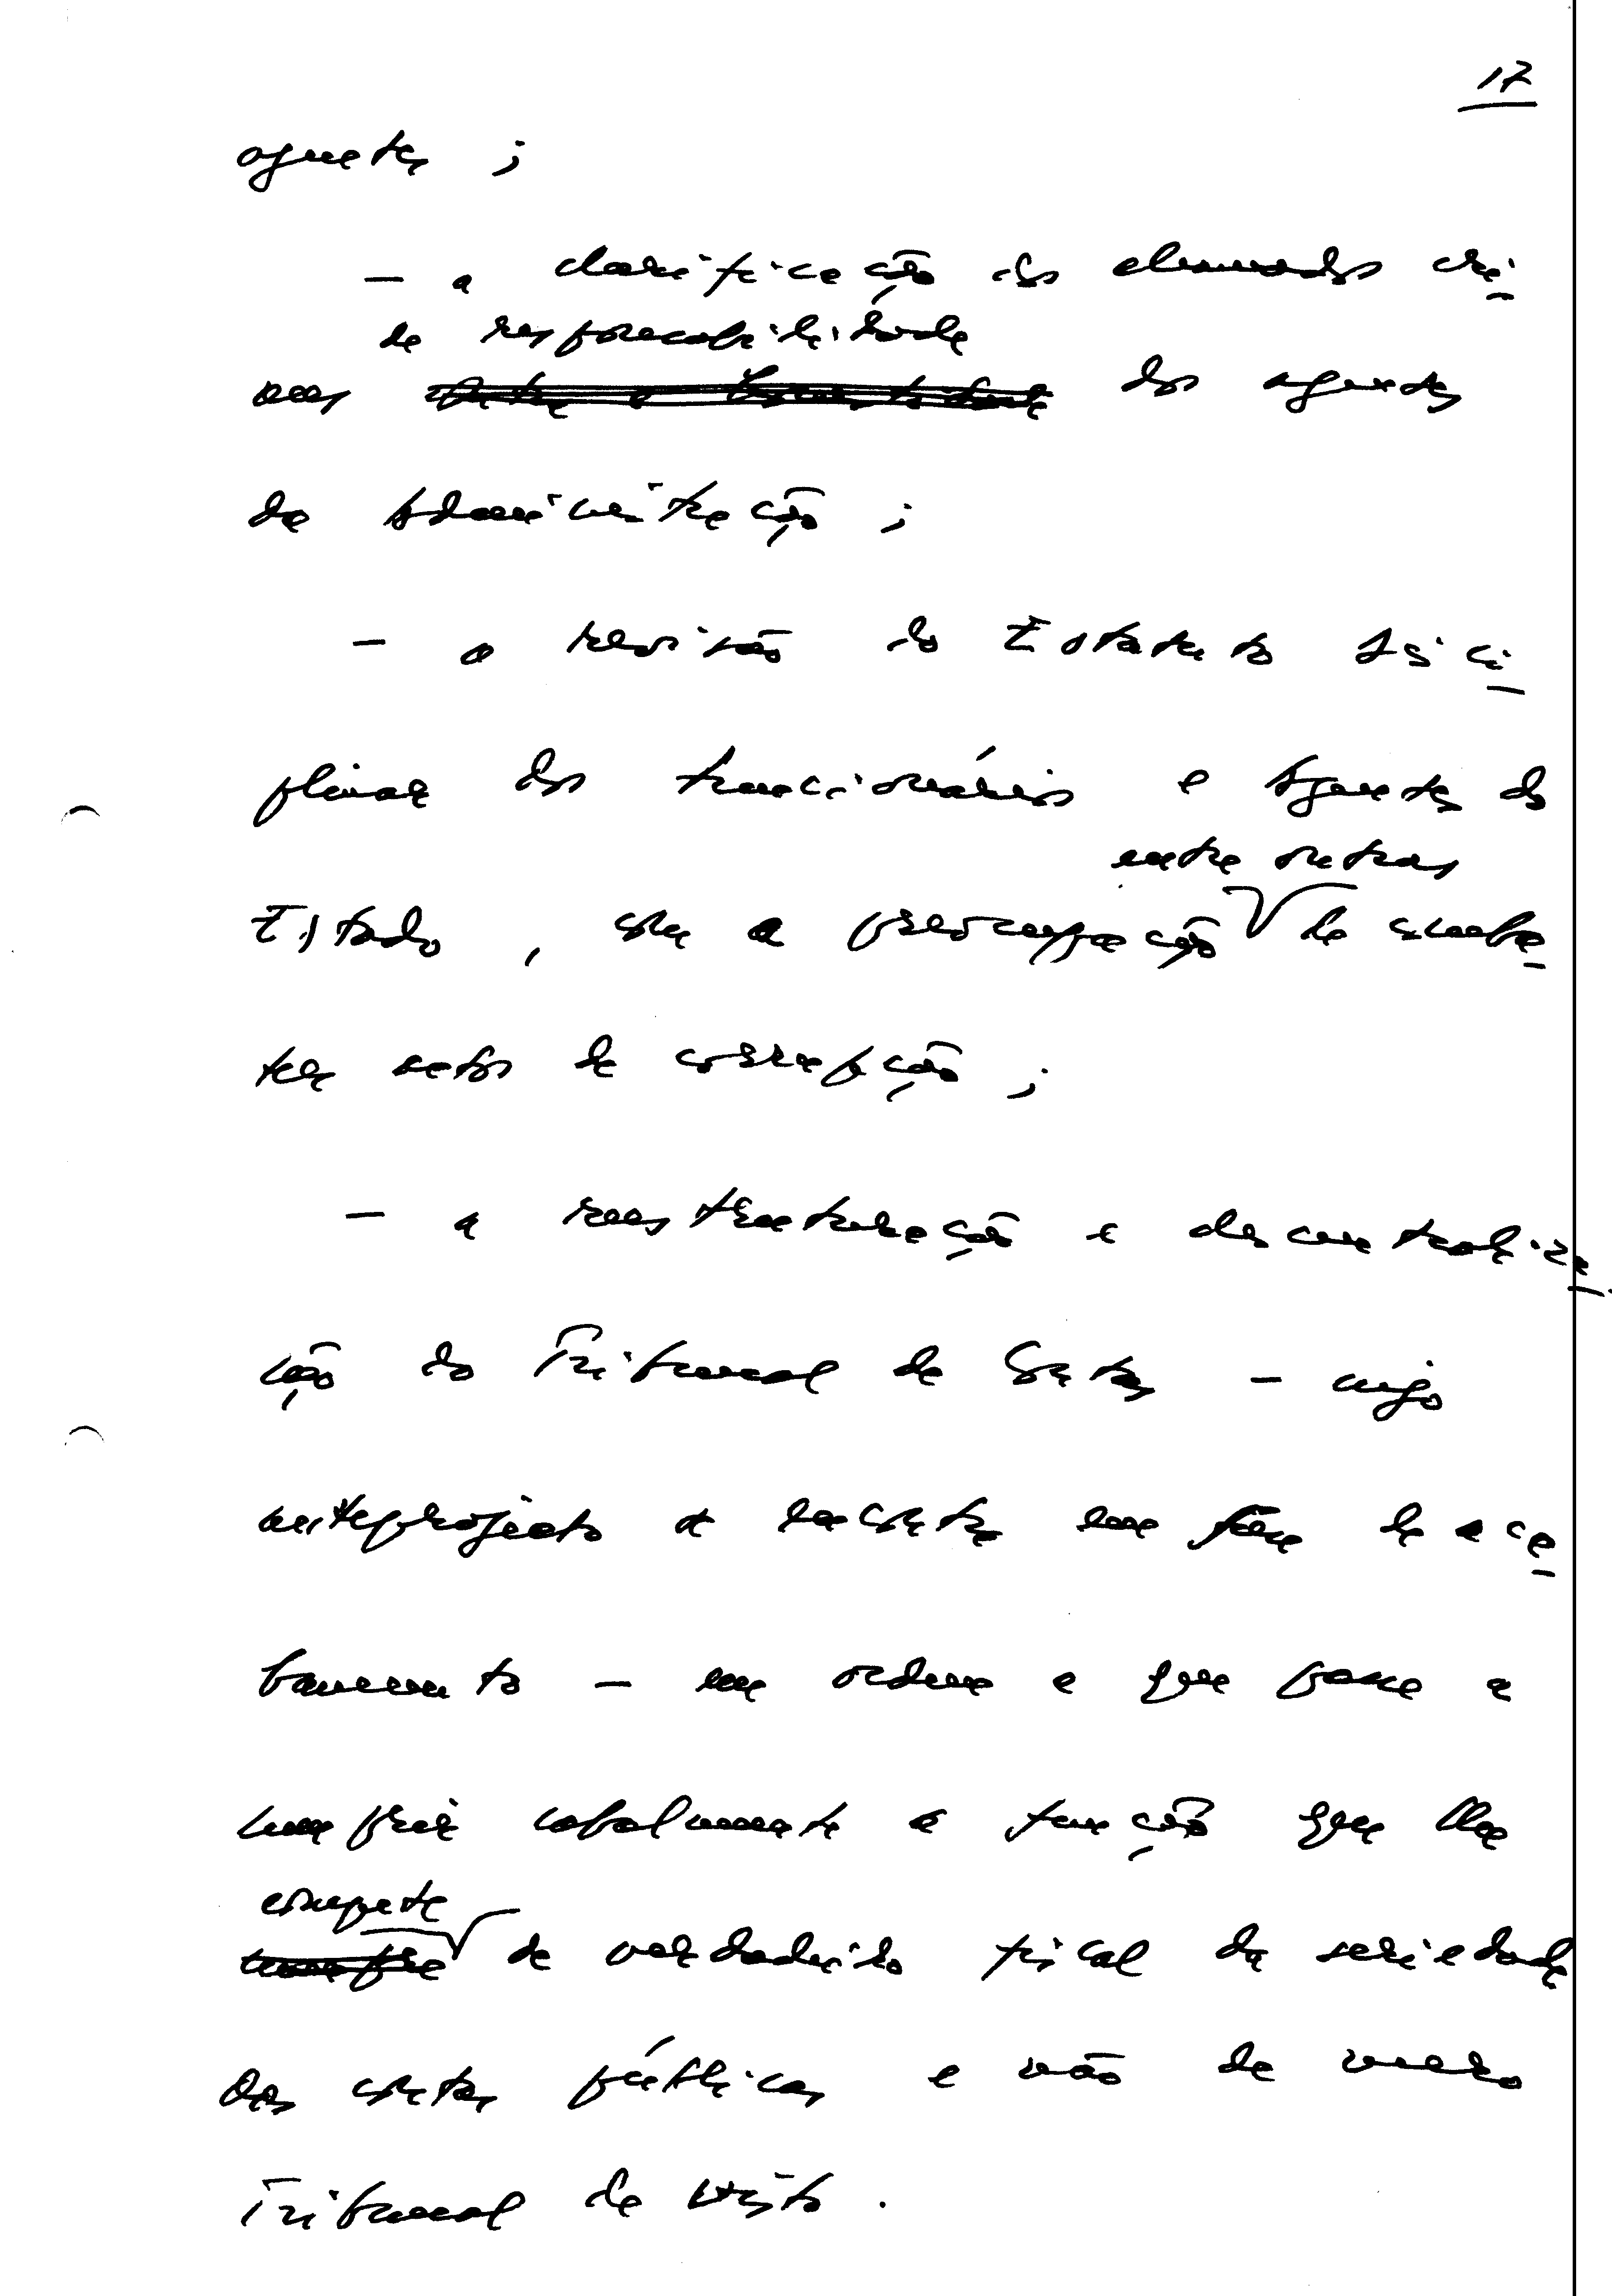 17
agentes ;
– a clarificação dos chamados cri
de responsabilidade
mes dos agentes
da Administração ;
– a revisão do Estatuto Disci
plinar dos Funcionários e Agentes do
entre outras
Estado, com a preocupação de comba
ter actos de corrupção ;
– a reestruturação e descentraliza
ção do Tribunal de Contas – cujo
anteprojecto se encontra em fase de aca
bamento – em ordem a que passe a
cumprir cabalmente a função que lhe
compete
de verdadeiro fiscal da seriedade
das contas públicas e não de mero
Tribunal de visto.